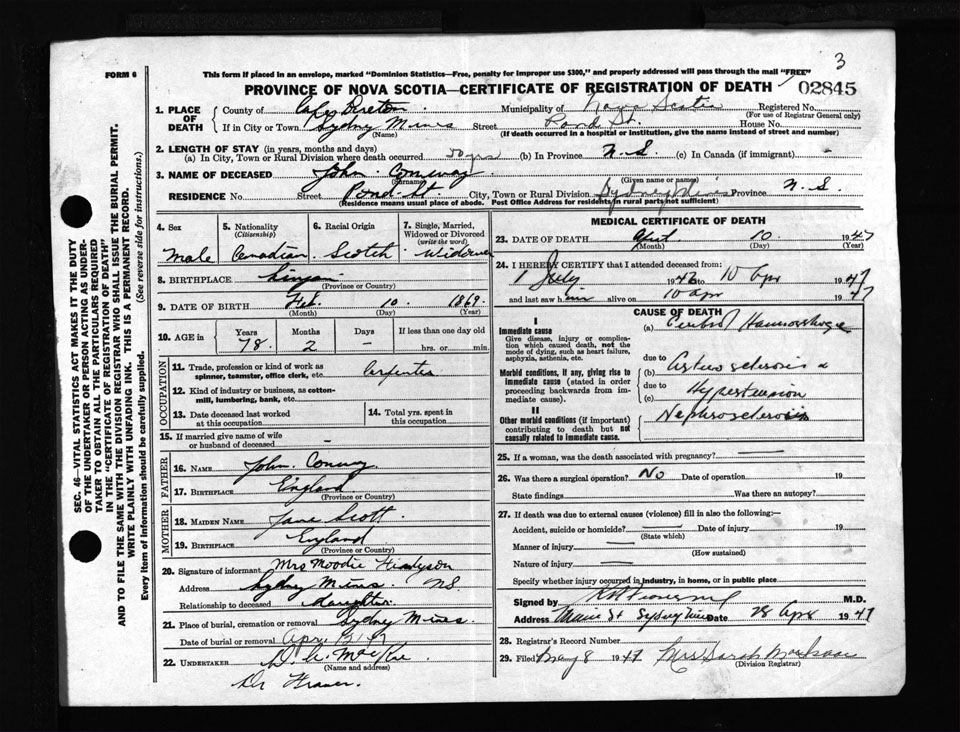 3
FORM 6
This form if placed in an envelope, marked "Dominion Statistics—Free, penalty for improper use $300," and properly addressed will pass through the mail "FREE"
PROVINCE OF NOVA SCOTIA—CERTIFICATE OF REGISTRATION OF DEATH 02845
1. PLACE OF DEATH
County of Cape Breton Municipality of Nova Scotia Registered No.
(For use of Registrar General only)
If in City or Town Sydney Mines Street Pond St. House No.
(Name) (If death occurred in a hospital or institution, give the name instead of street and number)
2. LENGTH OF STAY (in years, months and days)
(a) In City, Town or Rural Division where death occurred 50 yrs (b) In Province N.S. (c) In Canada (if immigrant) -
3. NAME OF DECEASED John Conway
(Surname) (Given name or names)
RESIDENCE No. Street Pond St. City, Town or Rural Division Sydney Mines Province N.S.
(Residence means usual place of abode. Post Office Address for residents in rural parts not sufficient)
4. Sex
Male
5. Nationality
(Citizenship)
Canadian
6. Racial Origin
Scotch
7. Single, Married, Widowed or Divorced
(write the word)
Widower
8. BIRTHPLACE Lingan
(Province or Country)
9. DATE OF BIRTH Feb. 10. 1869.
(Month) (Day) (Year)
10. AGE in
Years Months Days If less than one day old
78. 2 - hrs. or min.
OCCUPATION
11. Trade, profession or kind of work as spinner, teamster, office clerk, etc. Carpenter
12. Kind of industry or business, as cotton-mill, lumbering, bank, etc.
13. Date deceased last worked at this occupation
14. Total yrs. spent in this occupation
15. If married give name of wife or husband of deceased -
FATHER
16. NAME John. Conway
17. BIRTHPLACE England
(Province or Country)
MOTHER
18. MAIDEN NAME Jane Scott
19. BIRTHPLACE England
(Province or Country)
20. Signature of informant Mrs Moodie
Address Sydney Mines. NS
Relationship to deceased daughter.
21. Place of burial, cremation or removal Sydney Mines.
Date of burial or removal April 12/47
22. UNDERTAKER
(Name and address)
Dr Fraser.
MEDICAL CERTIFICATE OF DEATH
23. DATE OF DEATH April 10 1947
(Month) (Day) (Year)
24. I HEREBY CERTIFY that I attended deceased from:
1 July 1946 to 10 Apr 1947
and last saw him alive on 10 apr 1947
CAUSE OF DEATH
I
Immediate cause
Give disease, injury or complication which caused death, not the mode of dying, such as heart failure, asphyxia, asthenia, etc.
(a) Cerebral Haemorrhage
due to
Morbid conditions, if any, giving rise to immediate cause (stated in order proceeding backwards from immediate cause).
(b) Arteriosclerosis &
due to
(c) Hypertension
II
Other morbid conditions (if important) contributing to death but not causally related to immediate cause.
Nephrosclerosis
25. If a woman, was the death associated with pregnancy?
26. Was there a surgical operation? No Date of operation 19
State findings Was there an autopsy?
27. If death was due to external causes (violence) fill in also the following:—
Accident, suicide or homicide? Date of injury 19
(State which)
Manner of injury
(How sustained)
Nature of injury
Specify whether injury occurred in industry, in home, or in public place
Signed by M.D.
Address Main St Sydney Mines Date 28 Apr 1947
28. Registrar's Record Number
29. Filed May 8 1947 Mrs Sarah MacIsaac
(Division Registrar)
SEC. 46—VITAL STATISTICS ACT MAKES IT THE DUTY
OF THE UNDERTAKER OR PERSON ACTING AS UNDER-
TAKER TO OBTAIN ALL THE PARTICULARS REQUIRED
IN THE "CERTIFICATE OF REGISTRATION OF DEATH"
AND TO FILE THE SAME WITH THE DIVISION REGISTRAR WHO SHALL ISSUE THE BURIAL PERMIT.
WRITE PLAINLY WITH UNFADING INK. THIS IS A PERMANENT RECORD.
Every item of information should be carefully supplied. (See reverse side for instructions.)